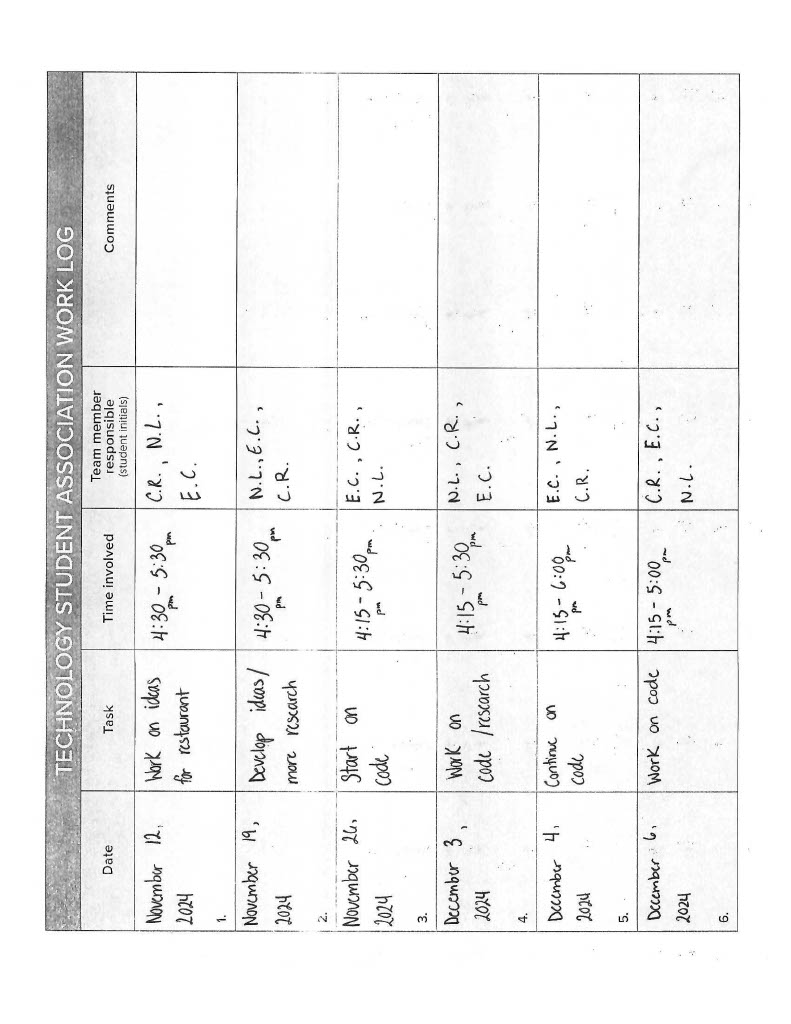 TECHNOLOGY STUDENT ASSOCIATION WORK LOG
Date
Task
Time involved
Team member
responsible
(student initials)
Comments
November 12,
2024
1.
Work on ideas
for restaurant
4:30 - 5:30
pm pm
C.R., N.L.,
E.C.
November 19,
2024
2.
Develop ideas/
more research
4:30 - 5:30
pm pm
N.L., E.C.,
C.R.
November 26,
2024
3.
Start on
code
4:15 - 5:30
pm pm
E.C., C.R.,
N.L.
December 3,
2024
4.
Work on
code /research
4:15 - 5:30
pm pm
N.L., C.R.,
E.C.
December 4,
2024
5.
Continue on
code
4:15 - 6:00
pm pm
E.C., N.L.,
C.R.
December 6,
2024
6.
Work on code
4:15 - 5:00
pm pm
C.R., E.C.,
N.L.